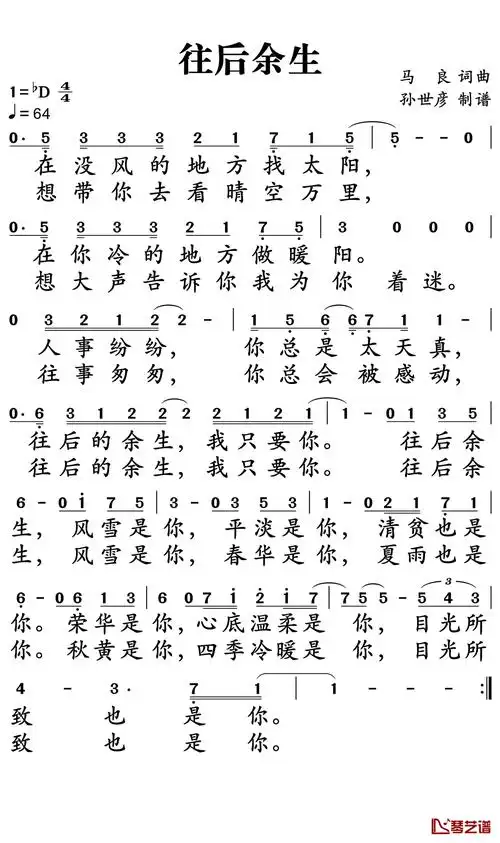 往后余生
1=♭D 4/4
马 良 词曲
♩=64
孙世彦 制谱
0· 5 3 3 3 2 1 7 1 5 | 5 - - 0
在没风的地方找太阳，
想带你去看晴空万里，
0· 5 3 3 3 2 1 7 5 | 3 0 0 0
在你冷的地方做暖阳。
想大声告诉你我为你 着迷。
0 3 2 1 2 2 - | 1 5 6 6 6 7 1
人事纷纷， 你总是太天真，
往事匆匆， 你总会被感动，
0· 6 3 1 2 2 2 2 1 2 1 | 1 - 0 1 3 5
往后的余生，我只要你。 往后余
往后的余生，我只要你。 往后余
6 - 0 i 7 5 | 3 - 0 3 5 3 | 1 - 0 2 1 7 1
生， 风雪是你， 平淡是你， 清贫也是
生， 风雪是你， 春华是你， 夏雨也是
6 - 0 6 1 3 | 6 0 7 i 2 i 7 | 7 5 5 - 5 4 3
你。荣华是你，心底温柔是 你， 目光所
你。秋黄是你，四季冷暖是 你， 目光所
4 - 3· 7 1 | 1 - - - :||
致 也 是 你。
致 也 是 你。
琴艺谱